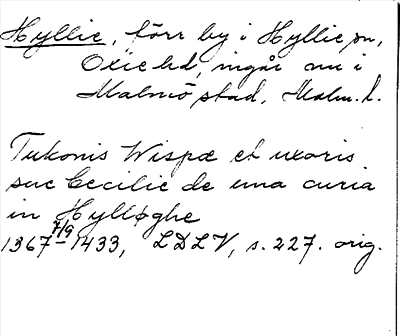 Hyllie, förr by i Hyllie sn,
Oxie hd, ingår nu i
Malmö stad, Malm. l.
Tukonis Wispæ et uxoris
sue Cecilie de una curia
in Hylløghe
1367 7/9 – 1433, LDLV, s. 227. orig.